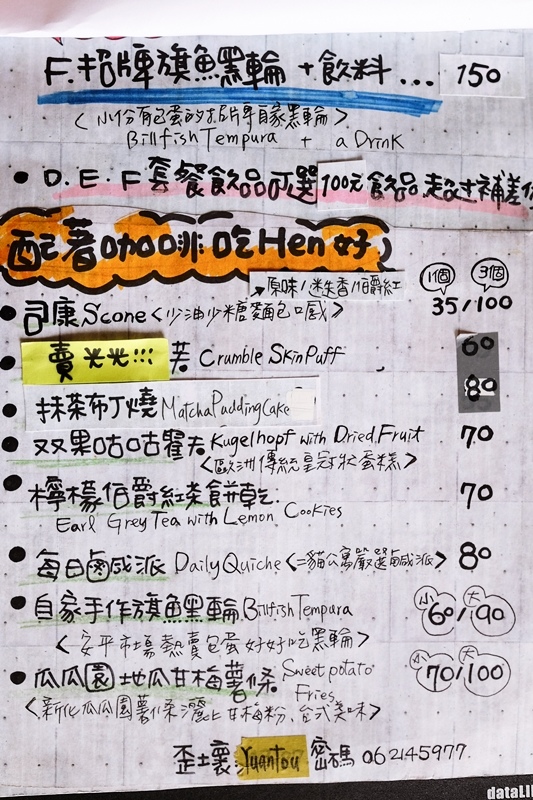 F.招牌旗魚黑輪 + 飲料... 150
<小份有包蛋的 自家黑輪>
Billfish Tempura + a Drink
• D.E.F 套餐飲品可選100元飲品,超過補差
配著咖啡吃Hen好
原味/迷迭香/伯爵紅 1個 3個
• 司康 Scone <少油少糖麵包口感> 35/100
• 賣光光!!! 芙 Crumble Skin Puff 60
• 抹茶布丁燒 Matcha Pudding Cake 80
• 双果咕咕瞿夫 Kugelhopf with Dried Fruit 70
<歐洲傳統皇冠狀蛋糕>
• 檸檬伯爵紅茶餅乾 70
Earl Grey Tea with Lemon Cookies
• 每日鹵咸派 Daily Quiche <二貓公寓嚴選鹹派> 80
• 自家手作旗魚黑輪 Billfish Tempura 小 60/大 90
<安平市場熱賣包蛋好好吃黑輪>
• 瓜瓜園地瓜甘梅薯條 Sweet potato Fries 小 70/大 100
<新化瓜瓜園薯條灑上甘梅粉,台式美味>
歪土壤:Yuantou 密碼 062145977